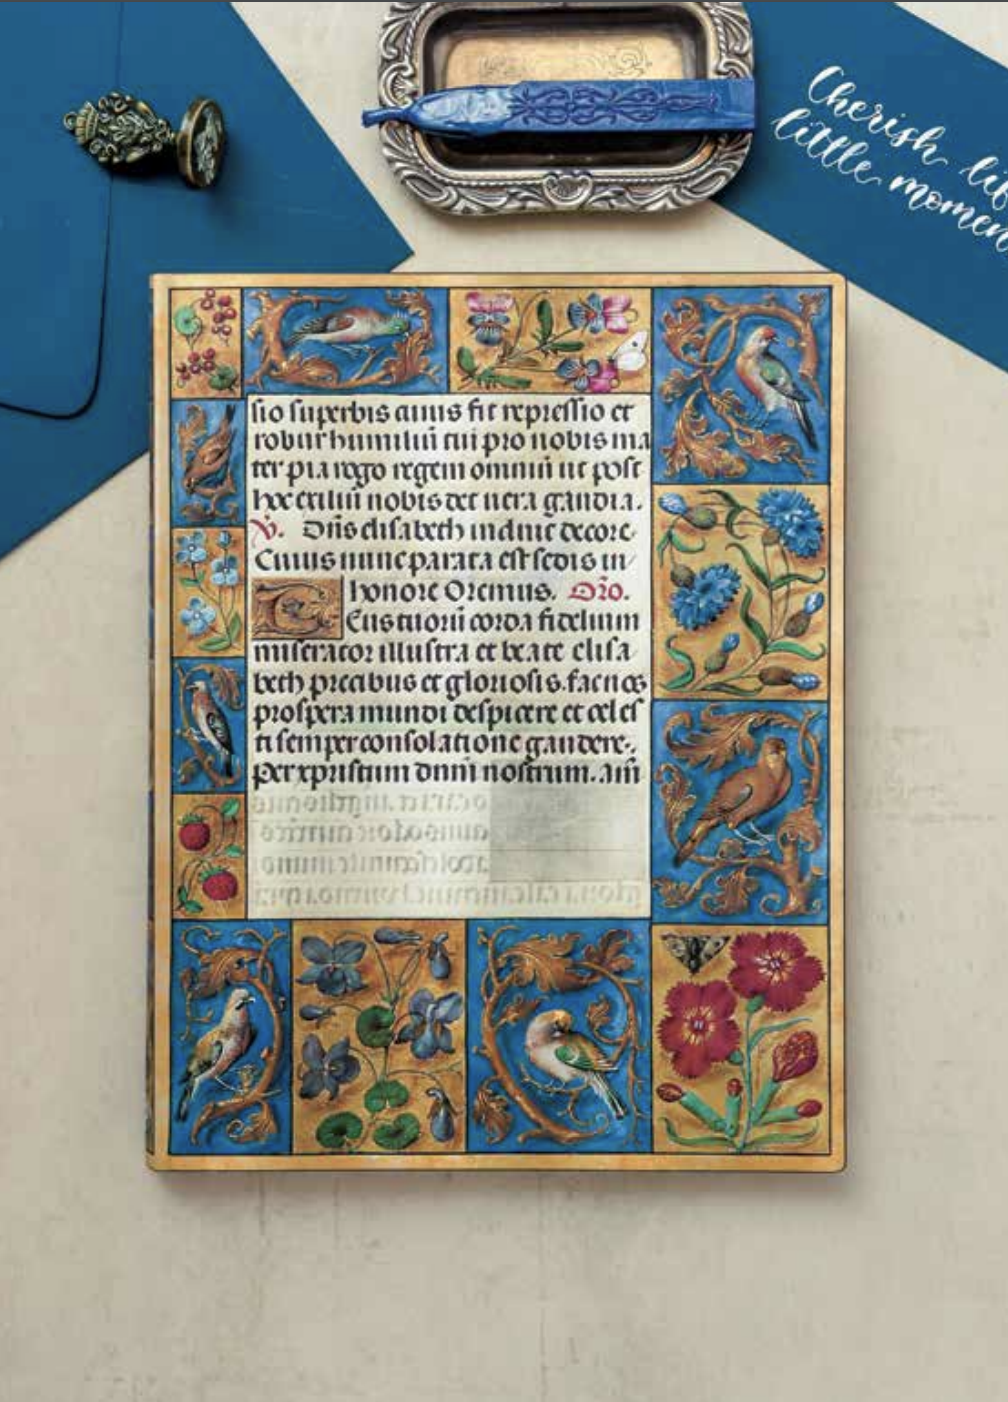 Cherish lif
little momen
sio superbis auus fit repressio et
robur humiliū cui pro nobis ma
ter pia rogo regem omniū ut post
hoc exiliū nobis det uera gaudia.
V. Ora elisabeth
Cuius nunc parata est sedis in
honore Oremus. Orō.
Eus tuorū corda fidelium
miserator illustra et beate elisa
beth precibus et gloriosis. fac nos
prospera mundi despicere et celes
ti semper consolatione gaudere.
Per xpristum dnm nostrum. am̄